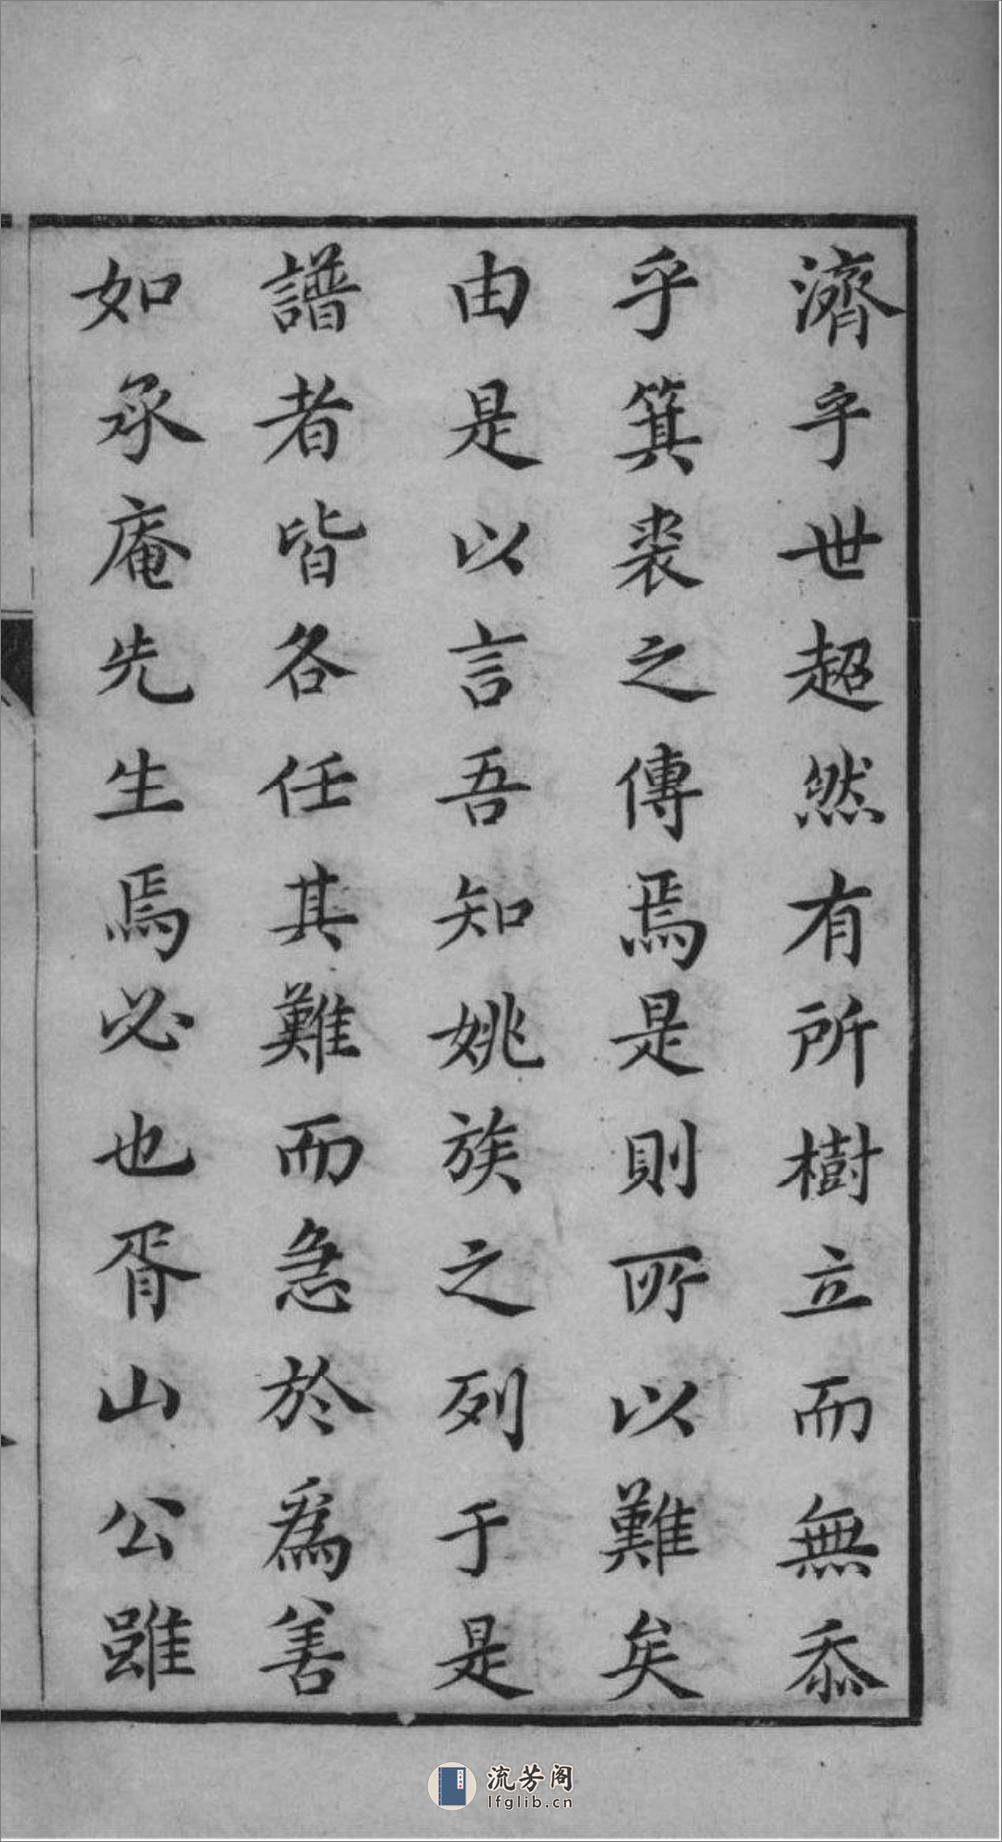 濟乎世超然有所樹立而無忝
乎箕裘之傳焉是則所以難矣
由是以言吾知姚族之列于是
譜者皆各任其難而急於為善
如承庵先生焉必也胥山公雖
流芳阁
lfglib.cn